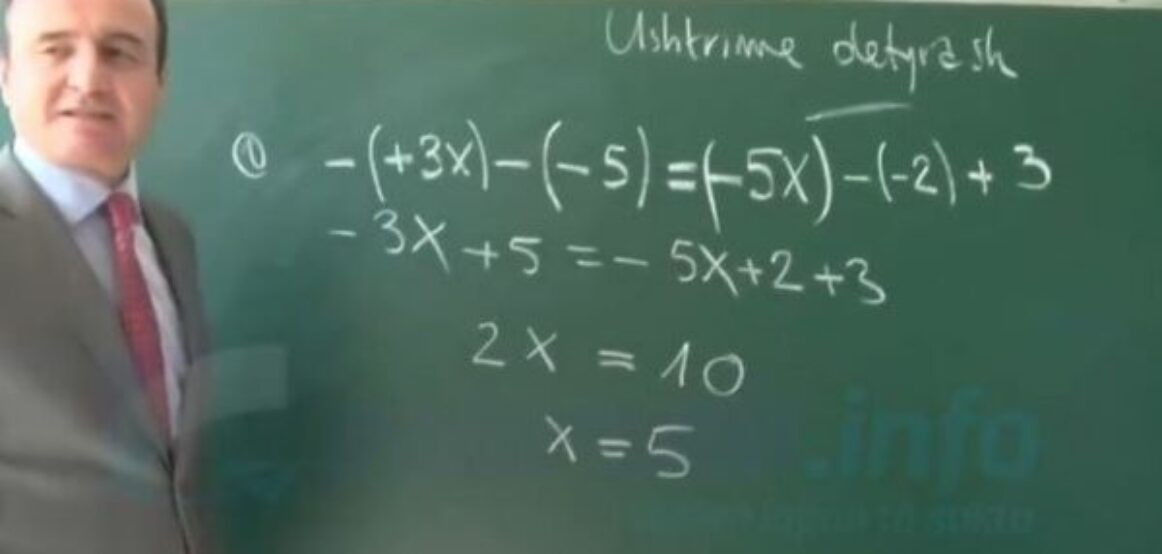 Ushtrime detyrash
① -(+3x)-(-5)=(-5x)-(-2)+3
-3x+5=-5x+2+3
2x=10
x=5
.info